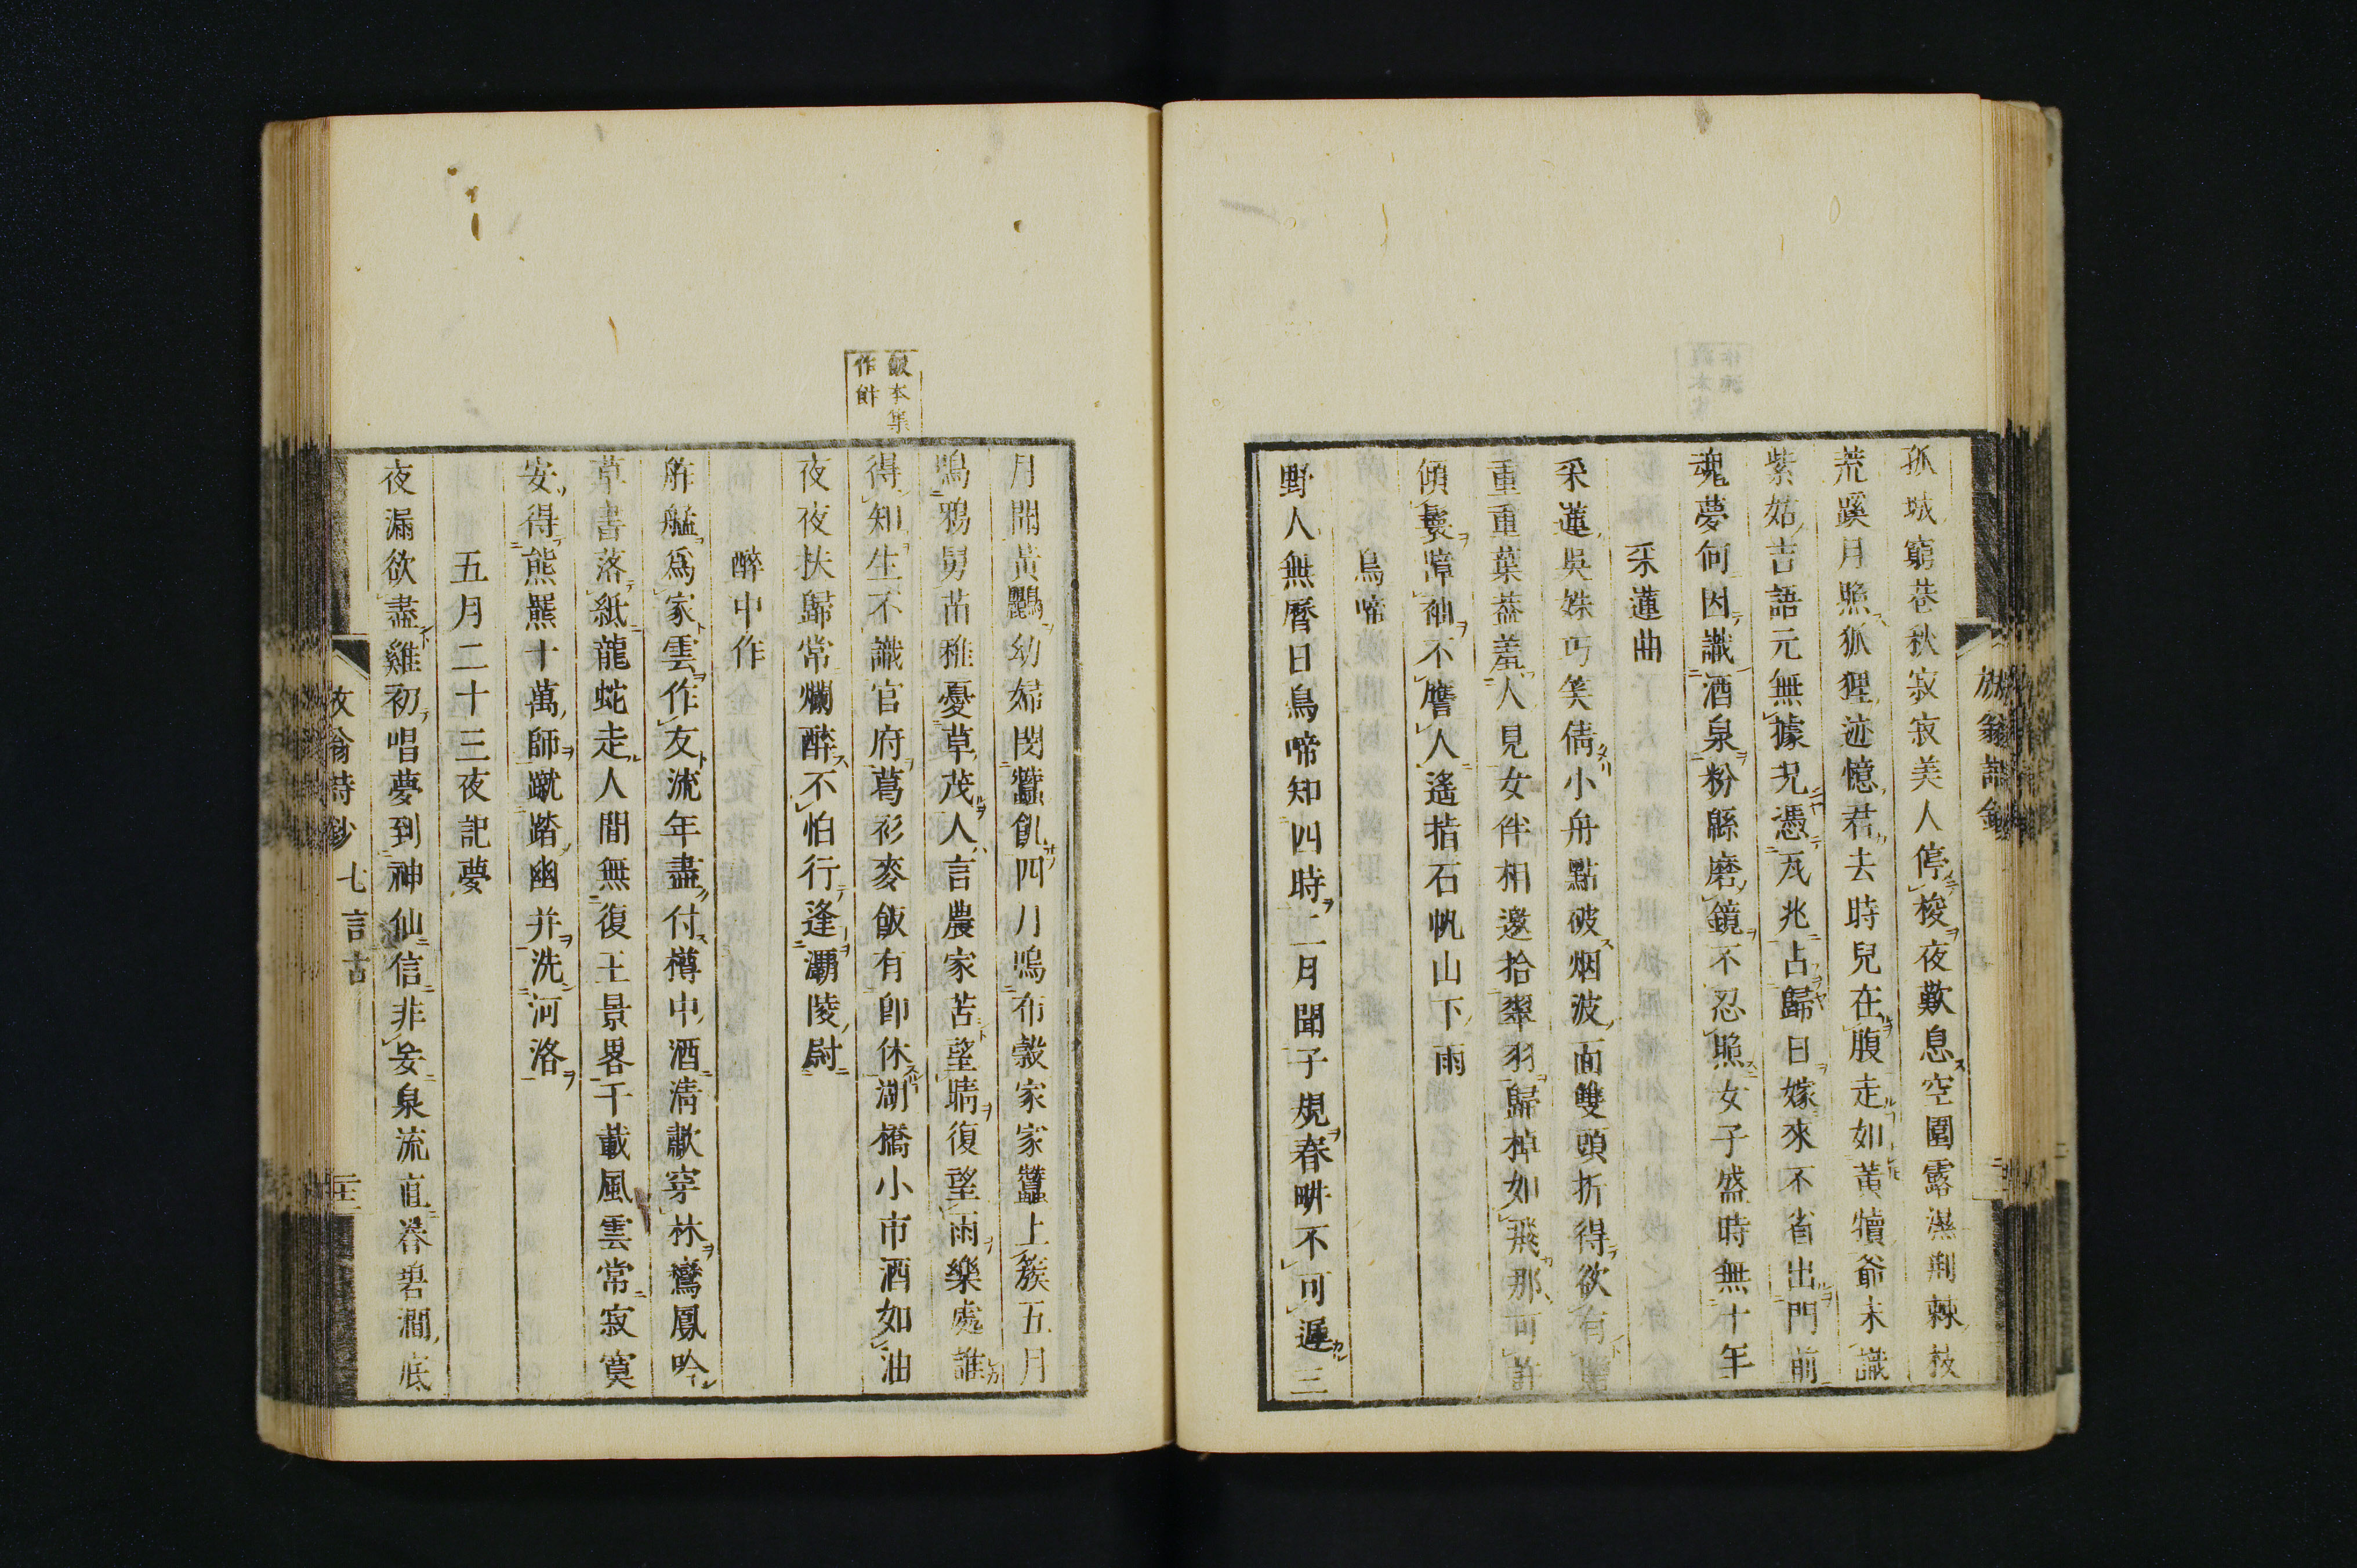 孤城窮巷秋寂寂美人停梭夜歎息空園露濕荆棘枝
荒蹊月照狐狸迹憶君去時兒在腹走如黃犢爺未識
紫姑吉語元無據况憑瓦兆占歸日嫁來不省出門前
魂夢何因識酒泉粉緜磨鏡不忍照女子盛時無十年
采蓮曲
采蓮吳姝巧笑倩小舟點破烟波面雙頭折得欲有
重重葉葢羞人見女伴相邀拾翠羽歸棹如飛那可許
傾鬟障袖不譍人遙指石帆山下雨
烏啼
野人無曆日鳥啼知四時二月聞子規春畊不可遲三
月聞黃鸝幼婦閔蠶飢四月鳴布穀家家蠶上簇五月
鳴鴉舅苗稚憂草茂人言農家苦望晴復望雨樂處誰
得知生不識官府葛衫麥飯有卽休湖橋小市酒如油
夜夜扶歸常爛醉不怕行逢灞陵尉
醉中作
觧艋爲家雲作友流年盡付樽中酒淸歗穿林鸞鳳吟
草書落紙龍蛇走人間無復王景畧千載風雲常寂寞
安得熊羆十萬師蹴踏幽并洗河洛
五月二十三夜記夢
夜漏欲盡雞初唱夢到神仙信非妄泉流直春碧澗底
飯本集
作餅
放翁詩鈔
放翁詩鈔 七言古